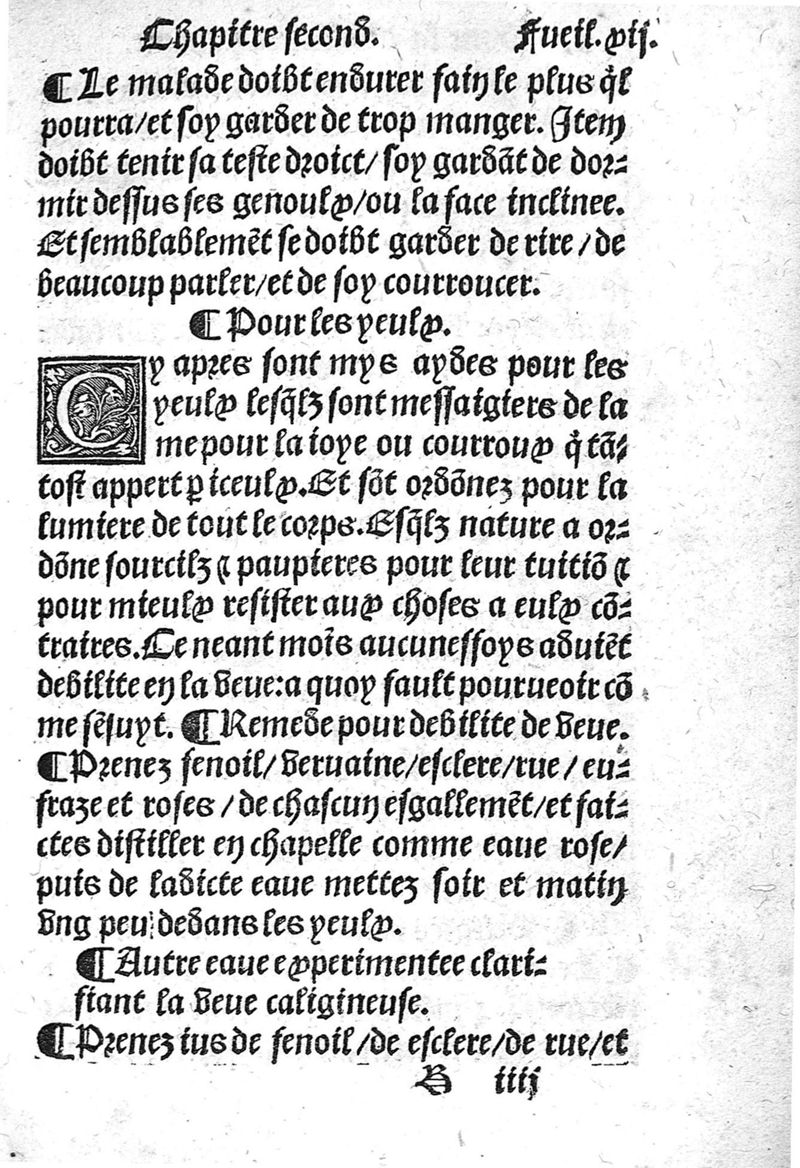 Chapitre second. Fueil. xij.
¶ Le malade doibt endurer fain le plus q̃l
pourra/et soy garder de trop manger. Item
doibt tenir sa teste droict/ soy gardãt de dor-
mir dessus ses genoulx/ou la face inclinee.
Et semblablemẽt se doibt garder de rire/de
beaucoup parler/et de soy courroucer.
¶ Pour les yeulx.
Cy apres sont mys aydes pour les
yeulx lesq̃lz sont messaigiers de la
me pour la ioye ou courroux q̃ tã-
tost appert ꝑ iceulx. Et sõt ordõnez pour la
lumiere de tout le corps. Esq̃lz nature a or-
dõne sourcilz ⁊ paupieres pour leur tuitiõ ⁊
pour mieulx resister aux choses a eulx cõ-
traires. Ce neant moĩs aucunesfoys aduiẽt
debilite en la veue:a quoy fault pourueoir cõ
me sẽsuyt. ¶ Remede pour debilite de veue.
¶ Prenez fenoil/ veruaine/esclere/rue/ eu-
fraze et roses /de chascun esgallemẽt/et fai-
ctes distiller en chapelle comme eaue rose/
puis de ladicte eaue mettez soir et matin
vng peu dedans les yeulx.
¶ Autre eaue experimentee clari-
fiant la veue caligineuse.
¶ Prenez ius de fenoil/de esclere/de rue/et
B iiij